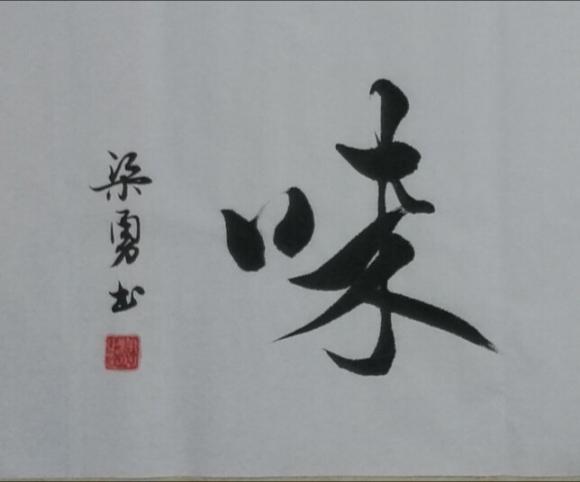 味
梁勇书